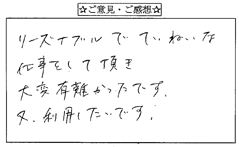 ☆ご意見・ご感想☆
リーズナブルでていねいな
仕事をして頂き
大変有難かったです。
又、利用したいです。